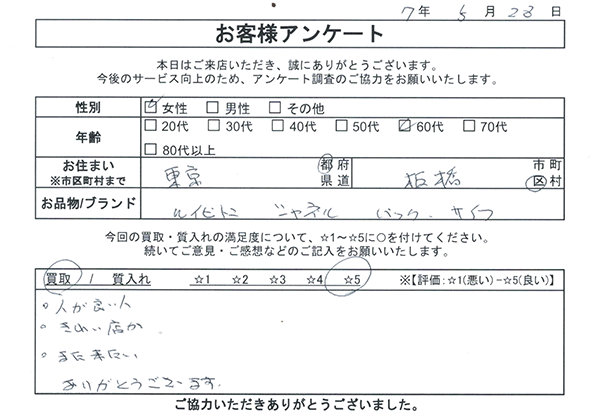 7年 5月 23日
お客様アンケート
本日はご来店いただき、誠にありがとうございます。
今後のサービス向上のため、アンケート調査のご協力をお願いいたします。
性別 ☑女性 □男性 □その他
年齢 □20代 □30代 □40代 □50代 ☑60代 □70代
□80代以上
お住まい ※市区町村まで 東京 都府県道 板橋 市町区村
お品物/ブランド ルイビトン シャネル バック、サイフ
今回の買取・質入れの満足度について、☆1～☆5に○を付けてください。
続いてご意見・ご感想などのご記入をお願いいたします。
買取 / 質入れ ☆1 ☆2 ☆3 ☆4 ☆5 ※【評価:☆1(悪い)-☆5(良い)】
。人が良い人
。きれい店が
。また来たい
ありがとうございます。
ご協力いただきありがとうございました。